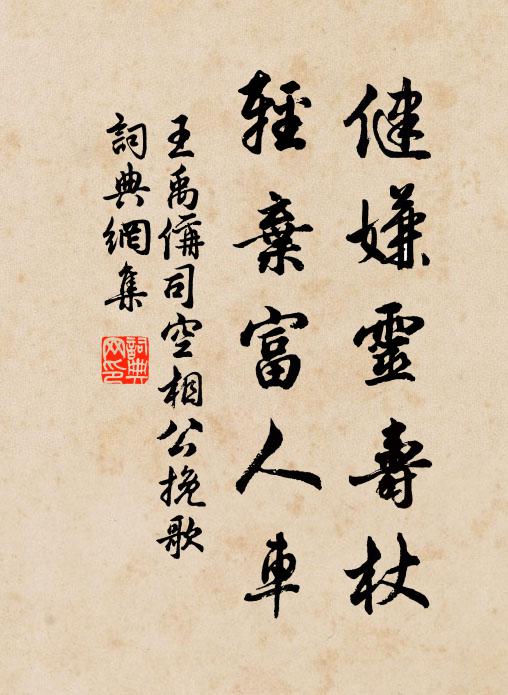 健嫌靈壽杖
輕棄富人車
王禹偁司空相公挽歌
詞典網集
詞典網印